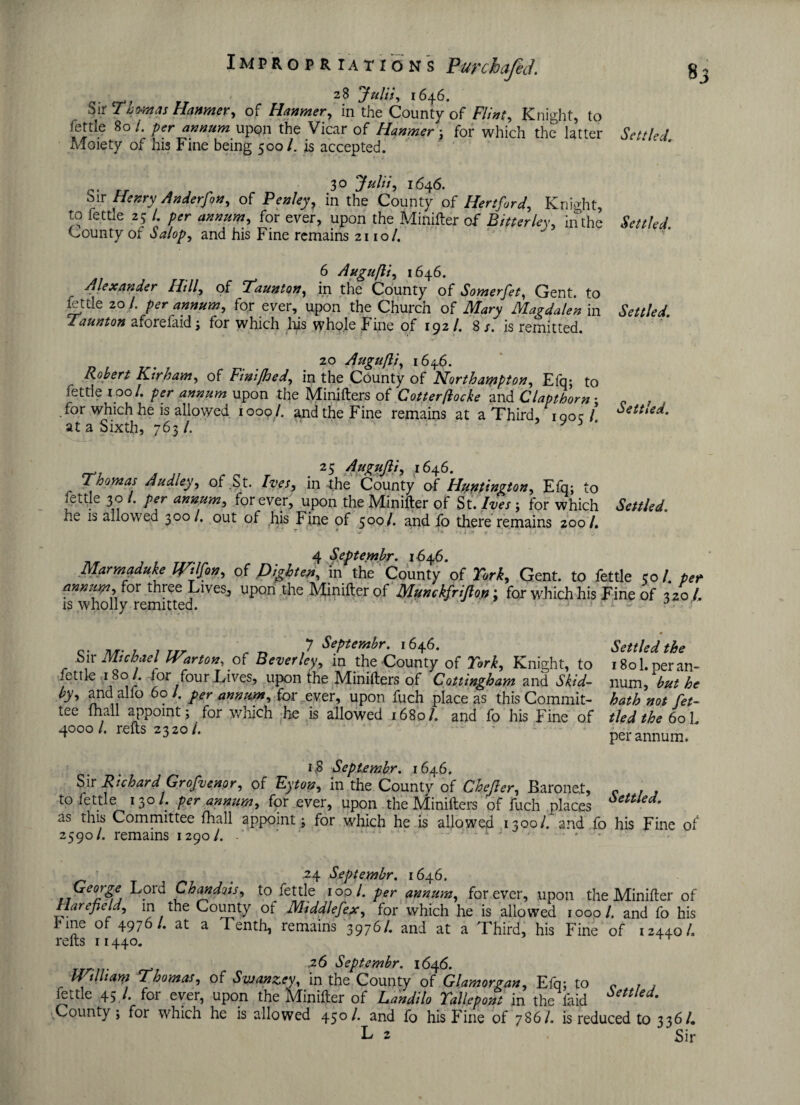 IMPROPRIATIONS Purchaſed. 83
28 Julii, 1646.
Sir Thomas Hanmer, of Hanmer, in the County of Flint, Knight, to
ſettle 80 l. per annum upon the Vicar of Hanmer; for which the latter Settled.
Moiety of his Fine being 500 l. is accepted.
30 Julii, 1646.
Sir Henry Anderſon, of Penley, in the County of Hertford, Knight,
to ſettle 25 l. per annum, for ever, upon the Miniſter of Bitterley, in the Settled.
County of Salop, and his Fine remains 2110 l.
6 Auguſti, 1646.
Alexander Hill, of Taunton, in the County of Somerſet, Gent. to
ſettle 20 l. per annum, for ever, upon the Church of Mary Magdalen in Settled.
Taunton aforeſaid; for which his whole Fine of 192 l. 8 s. is remitted.
20 Auguſti, 1646.
Robert Kirham, of Finiſhed, in the County of Northampton, Eſq; to
ſettle 100 l. per annum upon the Miniſters of Cotterſtocke and Clapthorn;
for which he is allowed 1000 l. and the Fine remains at a Third, 1905 l. Settled.
at a Sixth, 763 l.
25 Auguſti, 1646.
Thomas Audley, of St. Ives, in the County of Huntington, Eſq; to
ſettle 30 l. per annum, for ever, upon the Miniſter of St. Ives; for which Settled.
he is allowed 300 l. out of his Fine of 500 l. and ſo there remains 200 l.
4 Septembr. 1646.
Marmaduke Wilſon, of Dighten, in the County of York, Gent. to ſettle 50 l. per
annum, for three Lives, upon the Miniſter of Munckfriſton; for which his Fine of 320 l.
is wholly remitted.
7 Septembr. 1646. Settled the
Sir Michael Warton, of Beverley, in the County of York, Knight, to 180 l. per an-
ſettle 180 l. for four Lives, upon the Miniſters of Cottingham and Skid- num, but he
by, and alſo 60 l. per annum, for ever, upon ſuch place as this Commit- hath not ſet-
tee ſhall appoint; for which he is allowed 1680 l. and ſo his Fine of tled the 60 l.
4000 l. reſts 2320 l. per annum.
18 Septembr. 1646.
Sir Richard Groſvenor, of Eyton, in the County of Cheſter, Baronet,
to ſettle 130 l. per annum, for ever, upon the Miniſters of ſuch places Settled.
as this Committee ſhall appoint; for which he is allowed 1300 l. and ſo his Fine of
2590 l. remains 1290 l.
24 Septembr. 1646.
George Lord Chandois, to ſettle 100 l. per annum, for ever, upon the Miniſter of
Harefield, in the County of Middleſex, for which he is allowed 1000 l. and ſo his
Fine of 4976 l. at a Tenth, remains 3976 l. and at a Third, his Fine of 12440 l.
reſts 11440.
26 Septembr. 1646.
William Thomas, of Swanzey, in the County of Glamorgan, Eſq; to
ſettle 45 l. for ever, upon the Miniſter of Landilo Tallepont in the ſaid Settled.
County; for which he is allowed 450 l. and ſo his Fine of 786 l. is reduced to 336 l.
L 2 Sir